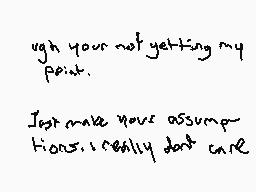 ugh your not getting my
point.
Just make your assump
tions. i really dont care